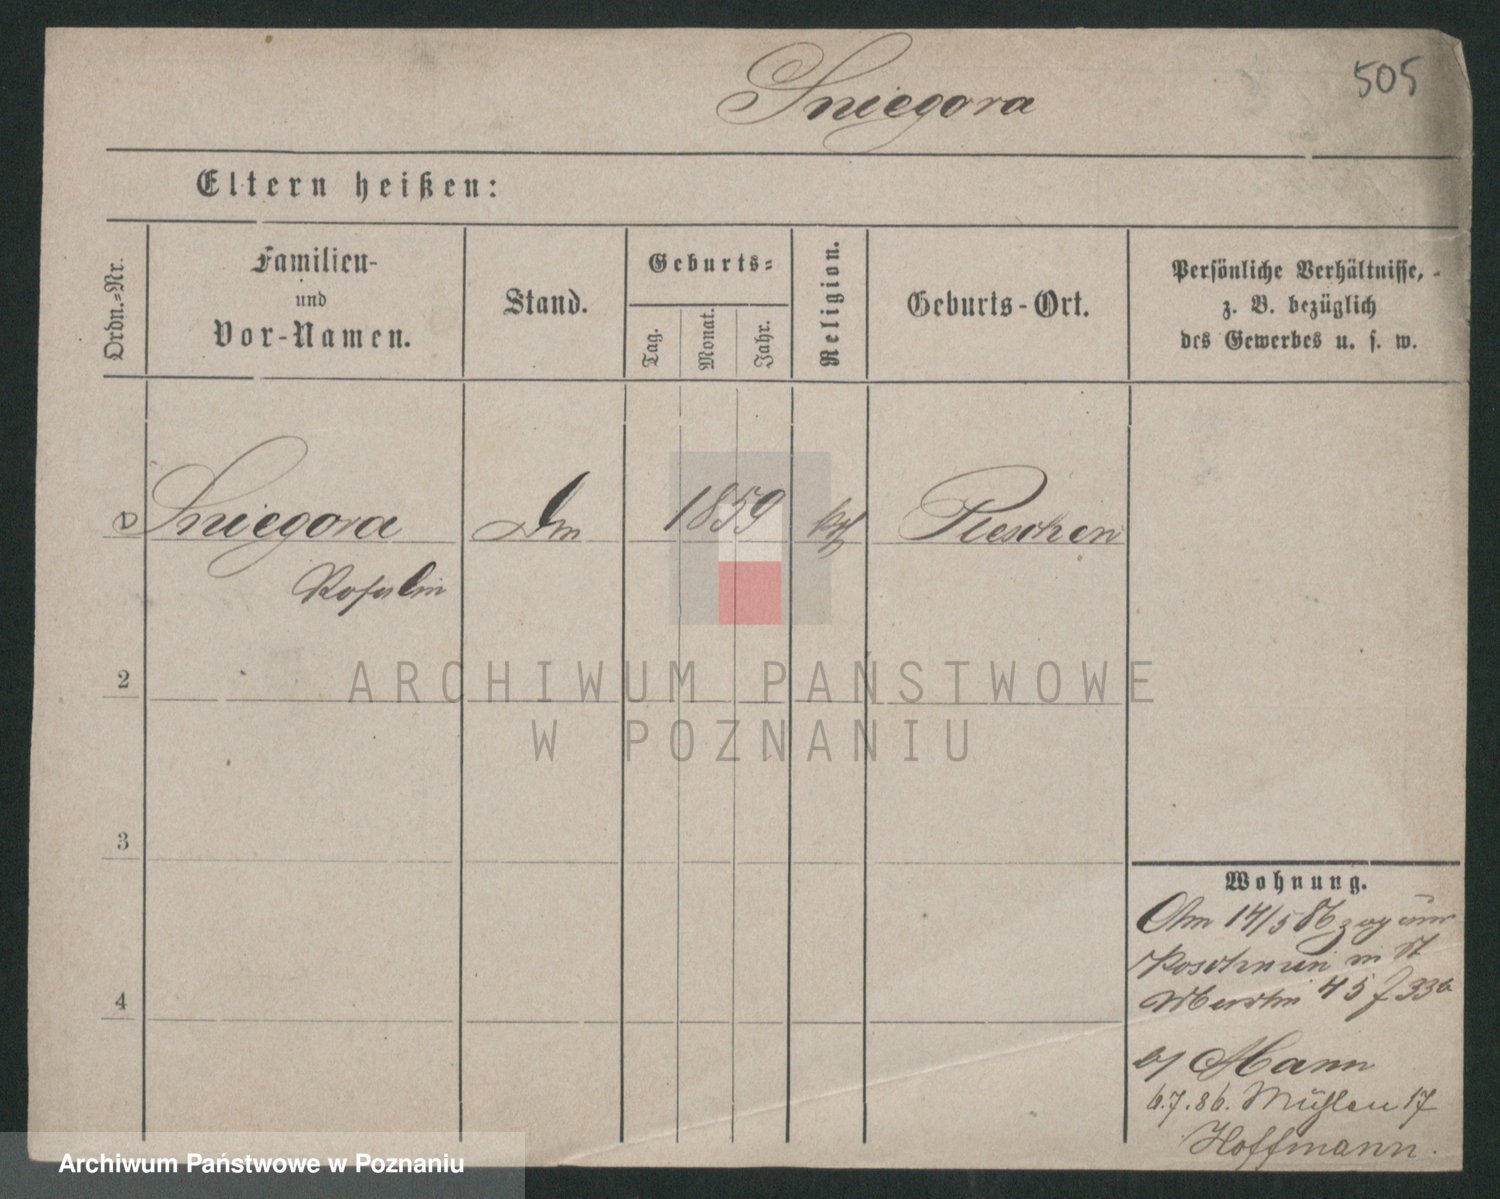 Sniegora
505
Eltern heißen:
Ordn.-Nr.
Familien-
und
Vor-Namen.
Stand.
Geburts-
Tag.
Monat.
Jahr.
Religion.
Geburts-Ort.
Persönliche Verhältnisse,
z. B. bezüglich
des Gewerbes u. s. w.
1 Sniegora Dm 1859 kth Pleschen
Rosalin
2
3
4
Wohnung.
Am 14/5 86 zog
in St
45 f 33b
b/ Mann
6.7.86. Mühlen 17
Hoffmann.
ARCHIWUM PAŃSTWOWE
W POZNANIU
Archiwum Państwowe w Poznaniu